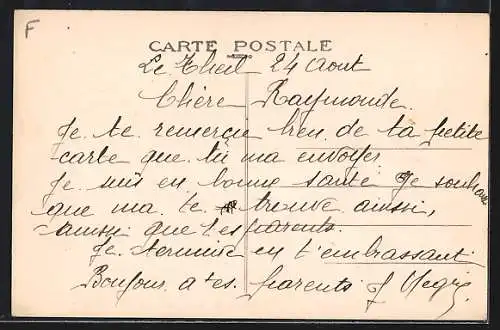 F
CARTE POSTALE
Le Theil 24 Aout
Chère Raymonde.
Je te remercie bien de ta petite
carte que tu ma envoyer
Je suis en bonne santé Je souhaite
que ma te trouve ainsi,
Ainsi que tes parents.
Je termine en t'embrassant
Bonjour a tes parents J